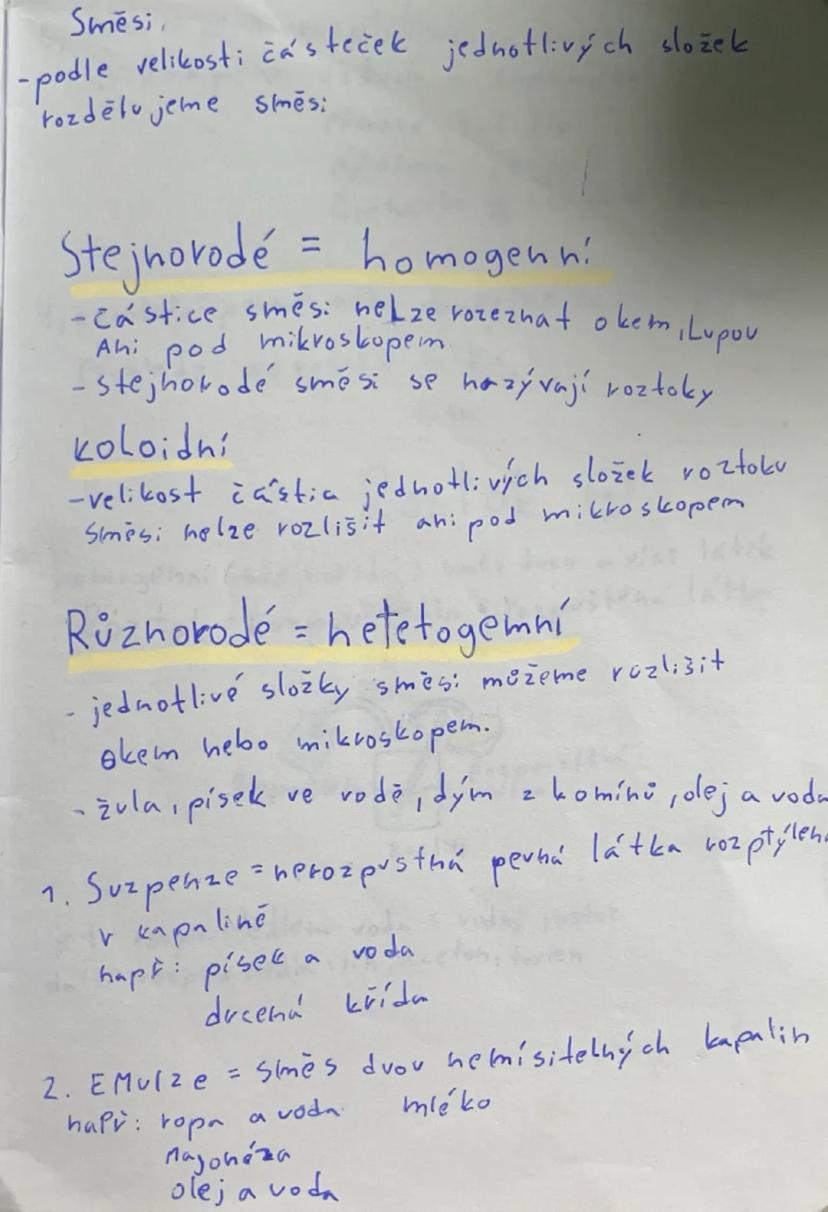 Směsi
-podle velikosti částeček jednotlivých složek
rozdělujeme směsi
Stejnorodé = homogenní
- částice směsi nelze rozeznat okem, Lupou
Ani pod mikroskopem
- stejnorodé směsi se nazývají roztoky
koloidní
-velikost částic jednotlivých složek roztoku
směsi nelze rozlišit ani pod mikroskopem
Různorodé = hetetogemní
- jednotlivé složky směsi můžeme rozlišit
Okem nebo mikroskopem.
- žula, písek ve vodě, dým z komínů, olej a voda
1. Suzpenze = nerozpustná pevná látka rozptýlena
v kapalině
např: písek a voda
drcená křída
2. EMulze = směs dvou nemísitelných kapalin
např: ropa a voda mléko
Majonéza
olej a voda